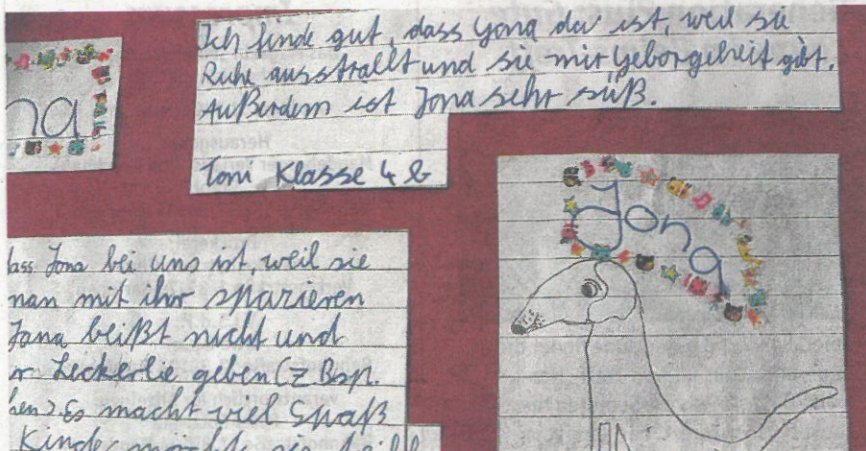 Ich finde gut, dass Yona da ist, weil sie
Ruhe ausstrallt und sie mir Geborgeheit gibt.
Außerdem ist Jona sehr süß.
Toni Klasse 4 b
na
Jona
ass Jona bei uns ist, weil sie
man mit ihr spazieren
Jana beißt nicht und
r Leckerlie geben (z Bsp.
hen). Es macht viel Spaß
Kinder möchte sie